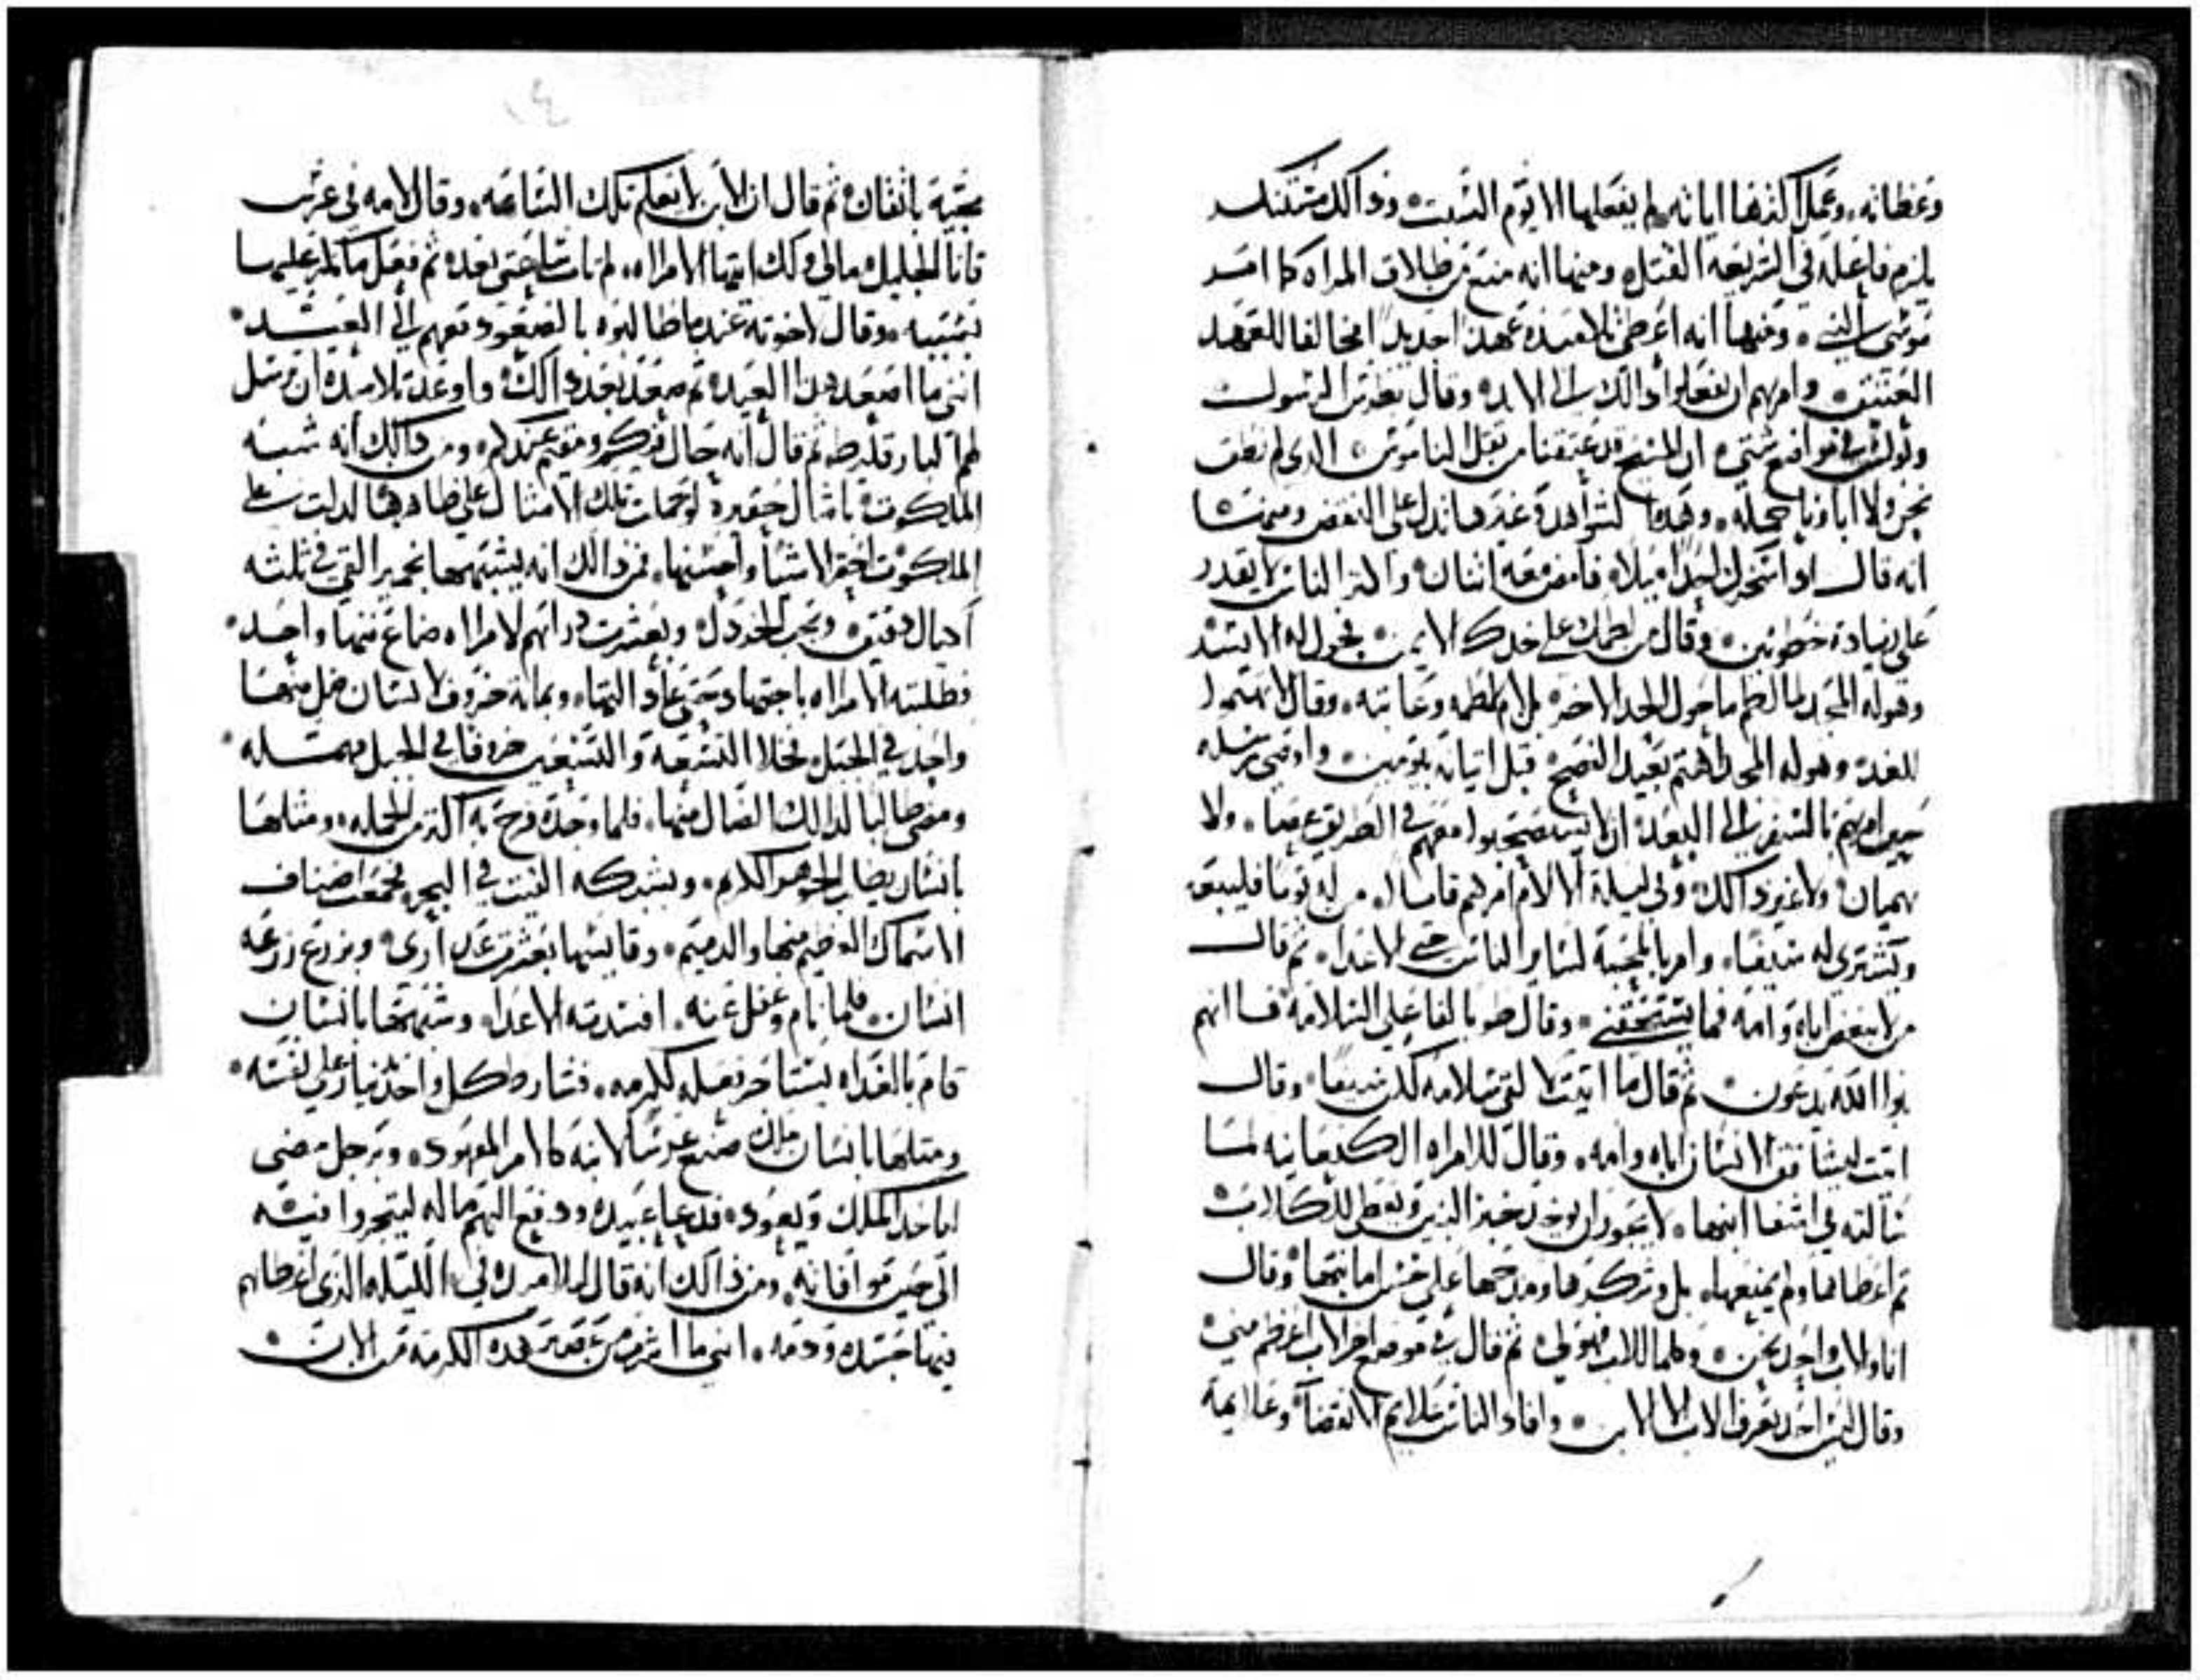 وعظاته، وعمل اكثرها اياته، لم يفعلها الا يوم السبت، وذالك مستنكر
يلزم فاعله في الشريعة القتل، ومنها انه منع من طلاق المراه كما امر
موسى النبي، ومنها انه اعرض تلاميذه عهدا جديدا مخالفا للعهد
العتيق، وامرهم ان يفعلوا ذالك الى الابد، وقال بطرس الرسول
وبولس في مواضع شتى، ان المسيح قد عتقنا من ثقل الناموس، الذي لم نطق
نحن ولا اباونا حمله، وهذه الشواهد وغيرها تدل على النقض ومنها
انه قال اذا سخرك احد ميلا، فامض معه اثنان، واكثر الناس لا يقدر
على زيادة خطوتين، وقال من لطمك على خدك الايمن، فحول له الايسر
وهوله المجد لما لطم ما حول الخد الاخر، بل لام لاطمه وعاتبه، وقال لا تهتموا
للغد، وهوله المجد اهتم بعيد الفصح، قبل اتيانه بيومين، واوصى رسله
حين امرهم بالسفر الى البعد، ان لا يستصحبوا معهم في الطريق عصا، ولا
هميان، ولا غير ذالك، وفي ليلة الالام امرهم قايلا، من له ثوبا فليبعه
ويشتري له سيفا، وامر بالمحبة لساير الناس حتى الاعدا، ثم قال
من لا يبغض اباه وامه فما يستحقني، وقال طوبا لفاعلي السلامه فاانهم
بنوا الله يدعون، ثم قال ما اتيت لالقي سلامه لكن سيفا، وقال
اتيت ليشاقق الانسان اباه وامه، وقال للامراه الكنعانيه لما
سالته في اشفا ابنتها، لا يجوز ان يوخذ خبز البنين ويعطى للكلاب
ثم اعطاها ولم يمنعها، بل وشكرها ومدحها على حسن امانتها، وقال
انا والاب واحد نحن، وكلما للاب فهو لي، ثم قال في موضع اخر الاب اعظم مني
وقال ليس احد يعرف الاب الا الابن، وافاد الناس علايم الانقضا، وعلايم
مجيه باتقان، ثم قال ان الابن لا يعلم تلك الساعه، وقال لامه في عرس
قانا الجليل، مالي ولك ايتها الامراه، لم تات ساعتي بعد، ثم فعل ما امر عليهما
بسببه، وقال لاخوته عندما طالبوه بالصعود معهم الى العيد،
انني ما اصعد هذا العيد، ثم صعد بعد ذالك، واوعد تلاميذه ان يرسل
لهم البارقليط، ثم قال انه حال فيكم ومقيم عندكم، ومن ذالك انه شبه
الملكوت بامثال حقيره، لو حملت تلك الامثال على ظاهرها لدلت على
الملكوت احقر الاشيا واخسها، فمن ذالك انه يشبهها بخمير التي في ثلثه
اكيال دقيق، وبحب الخردل، وبعشرت دراهم لامراه ضاع منها واحد،
فطلبته الامراه باجتهاد حتى عاد اليها، وبماية خروف لانسان ضل منها
واحد في الجبل، فخلا التسعة والتسعين خروفا في الجبل مهمله،
ومضى طالبا لذالك الضال منها، فلما وجده فرح به اكثر من الجمله، ومثلها
بانسان يطلب الجوهر الكريم، وبشبكه القيت في البحر، فجمعت اصناف
الاسماك العظيم منها والدميم، وقايسها بعشرت عدارى، وبزرع زرعه
انسان، فلما نام وغفل عنه، افسدته الاعدا، وشبهها بانسان
قام بالغداه ليستاجر فعله لكرمه، فشارط كل واحد دينار على نفسه،
ومثلها بانسان ملك صنع عرسا لابنه كالامر المعهود، وبرجل مضى
لياخذ الملك ويعود، فدعا عبيده ودفع اليهم ماله ليتجروا فيه
الى حين موافاته، ومن ذالك انه قال لتلاميذه في الليله الذي اعطاهم
فيها جسده ودمه، انني ما اشرب من عصير هذه الكرمة من الان،